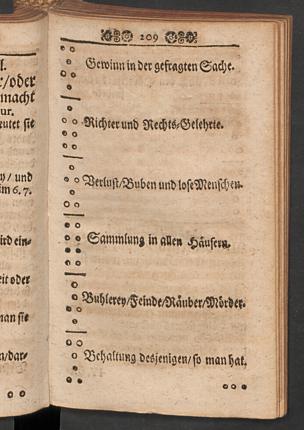 l.
r/oder
macht
ur.
eutet sie
y/ und
im 6. 7.
ird ein-
eit oder
nan sie
n/dar-
209
Gewinn in der gefragten Sache.
Richter und Rechts-Gelehrte.
Verlust/Buben und lose Menschen.
Sammlung in allen Häusern.
Buhlerey/Feinde/Räuber/Mörder.
Behaltung desjenigen/so man hat.